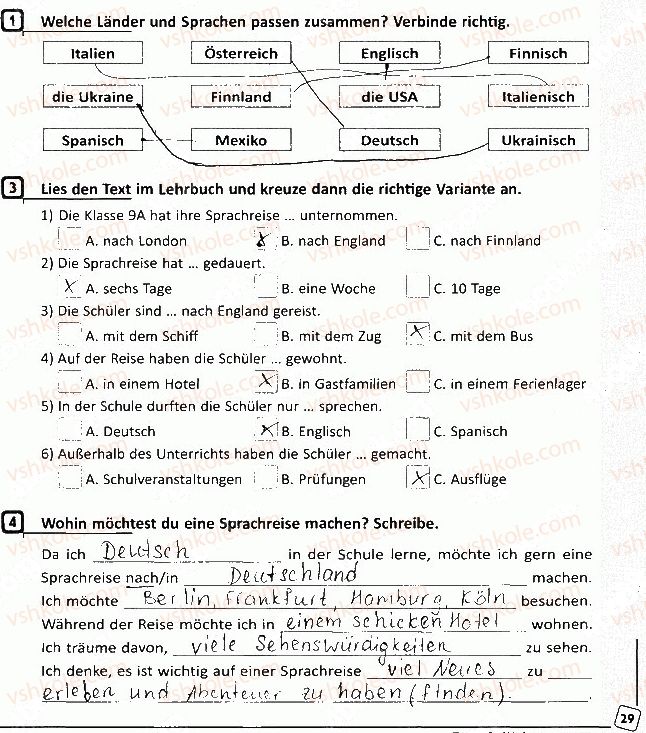 1 Welche Länder und Sprachen passen zusammen? Verbinde richtig.
Italien Österreich Englisch Finnisch
die Ukraine Finnland die USA Italienisch
Spanisch Mexiko Deutsch Ukrainisch
3 Lies den Text im Lehrbuch und kreuze dann die richtige Variante an.
1) Die Klasse 9A hat ihre Sprachreise ... unternommen.
A. nach London X B. nach England C. nach Finnland
2) Die Sprachreise hat ... gedauert.
X A. sechs Tage B. eine Woche C. 10 Tage
3) Die Schüler sind ... nach England gereist.
A. mit dem Schiff B. mit dem Zug X C. mit dem Bus
4) Auf der Reise haben die Schüler ... gewohnt.
A. in einem Hotel X B. in Gastfamilien C. in einem Ferienlager
5) In der Schule durften die Schüler nur ... sprechen.
A. Deutsch X B. Englisch C. Spanisch
6) Außerhalb des Unterrichts haben die Schüler ... gemacht.
A. Schulveranstaltungen B. Prüfungen X C. Ausflüge
4 Wohin möchtest du eine Sprachreise machen? Schreibe.
Da ich Deutsch in der Schule lerne, möchte ich gern eine
Sprachreise nach/in Deutschland machen.
Ich möchte Berlin, Frankfurt, Hamburg, Köln besuchen.
Während der Reise möchte ich in einem schicken Hotel wohnen.
Ich träume davon, viele Sehenswürdigkeiten zu sehen.
Ich denke, es ist wichtig auf einer Sprachreise viel Neues zu
erleben und Abenteuer zu haben (finden).
29